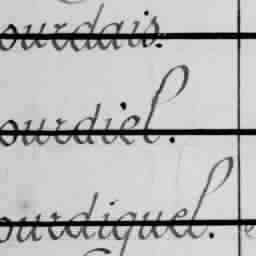 ourdais.
ourdiel.
ourdiquel.